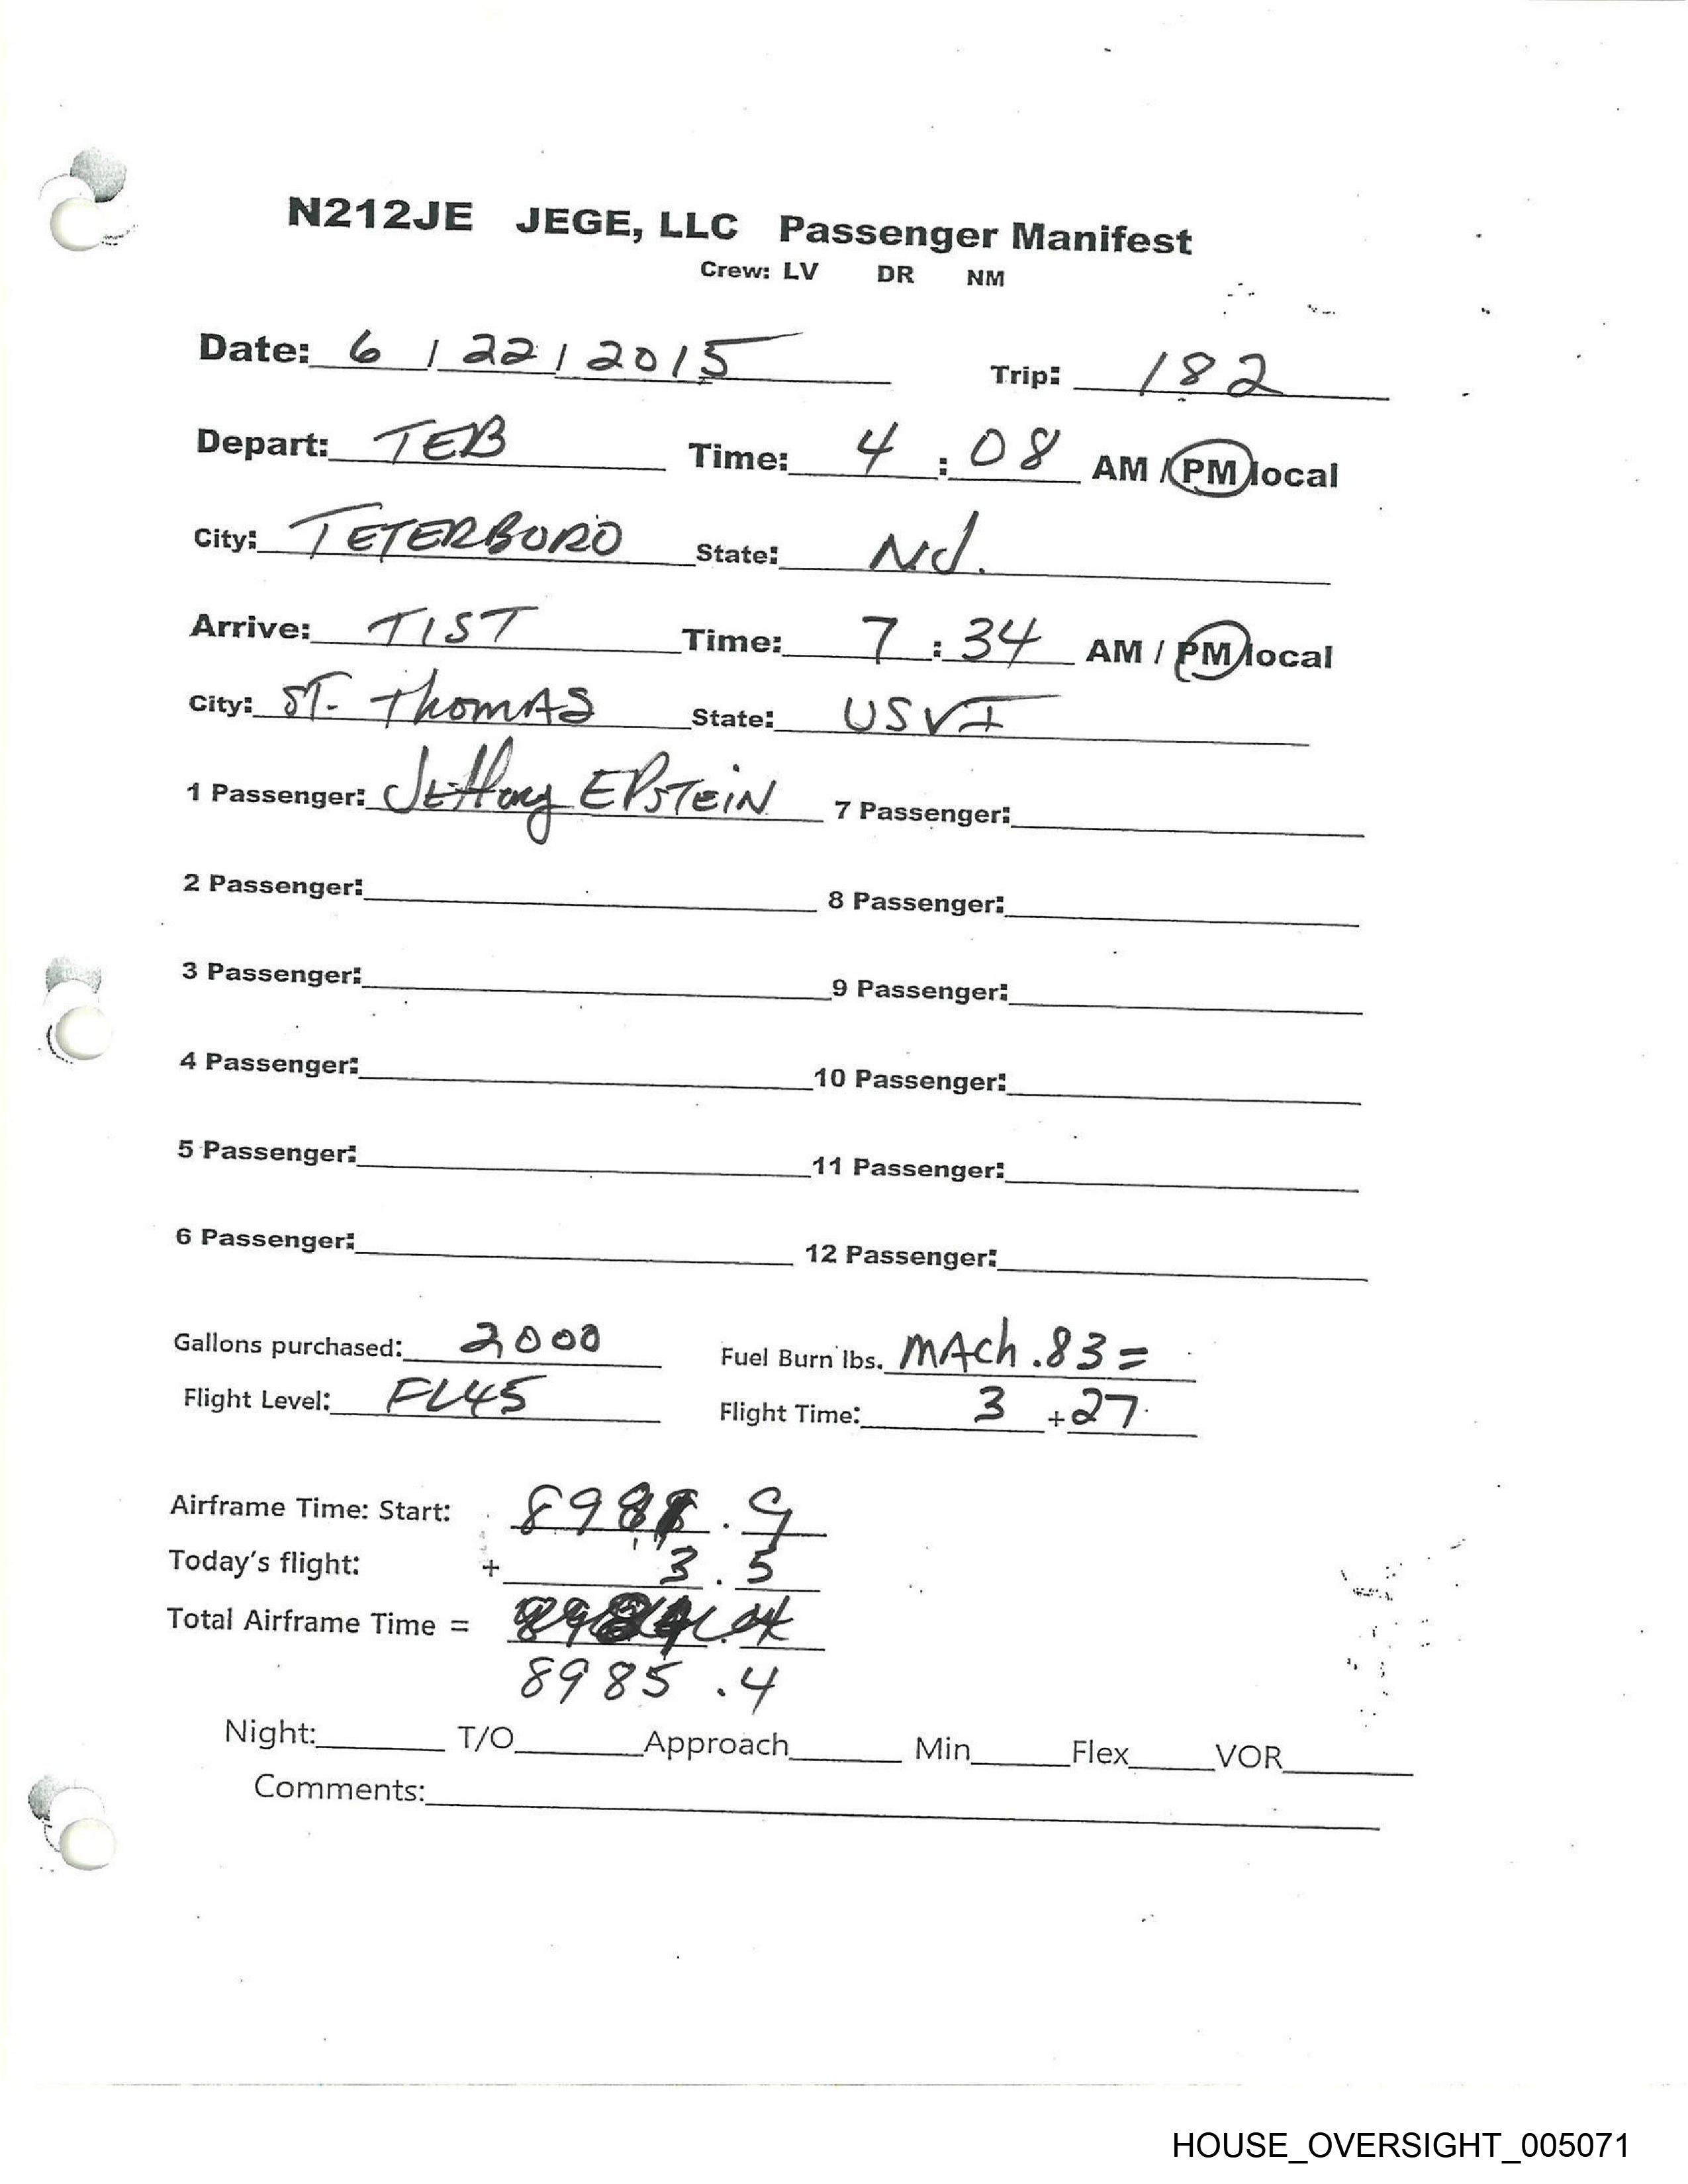 N212JE JEGE, LLC Passenger Manifest
Crew: LV DR NM
Date: 6 / 22 / 2015 Trip: 182
Depart: TEB Time: 4 : 08 AM / PM local
City: TETERBORO State: NJ.
Arrive: TIST Time: 7 : 34 AM / PM local
City: ST. ThomAS State: USVI
1 Passenger: Jeffrey EPSTEIN 7 Passenger:
2 Passenger: 8 Passenger:
3 Passenger: 9 Passenger:
4 Passenger: 10 Passenger:
5 Passenger: 11 Passenger:
6 Passenger: 12 Passenger:
Gallons purchased: 2000 Fuel Burn lbs. MAch .83 =
Flight Level: FL45 Flight Time: 3 + 27
Airframe Time: Start: .9
Today's flight: + 3 . 5
Total Airframe Time =
8985 .4
Night: T/O Approach Min Flex VOR
Comments:
HOUSE_OVERSIGHT_005071